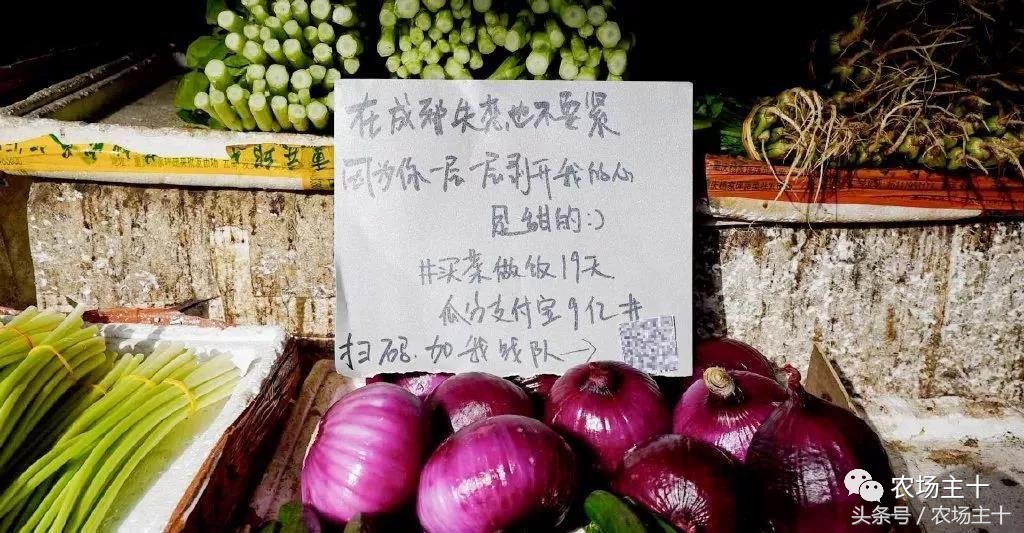 在成都失恋也不要紧
因为你一层一层剥开我的心
是甜的:)
#买菜做饭19天
瓜分支付宝9亿#
扫码.加我战队→
农场主十
头条号/农场主十